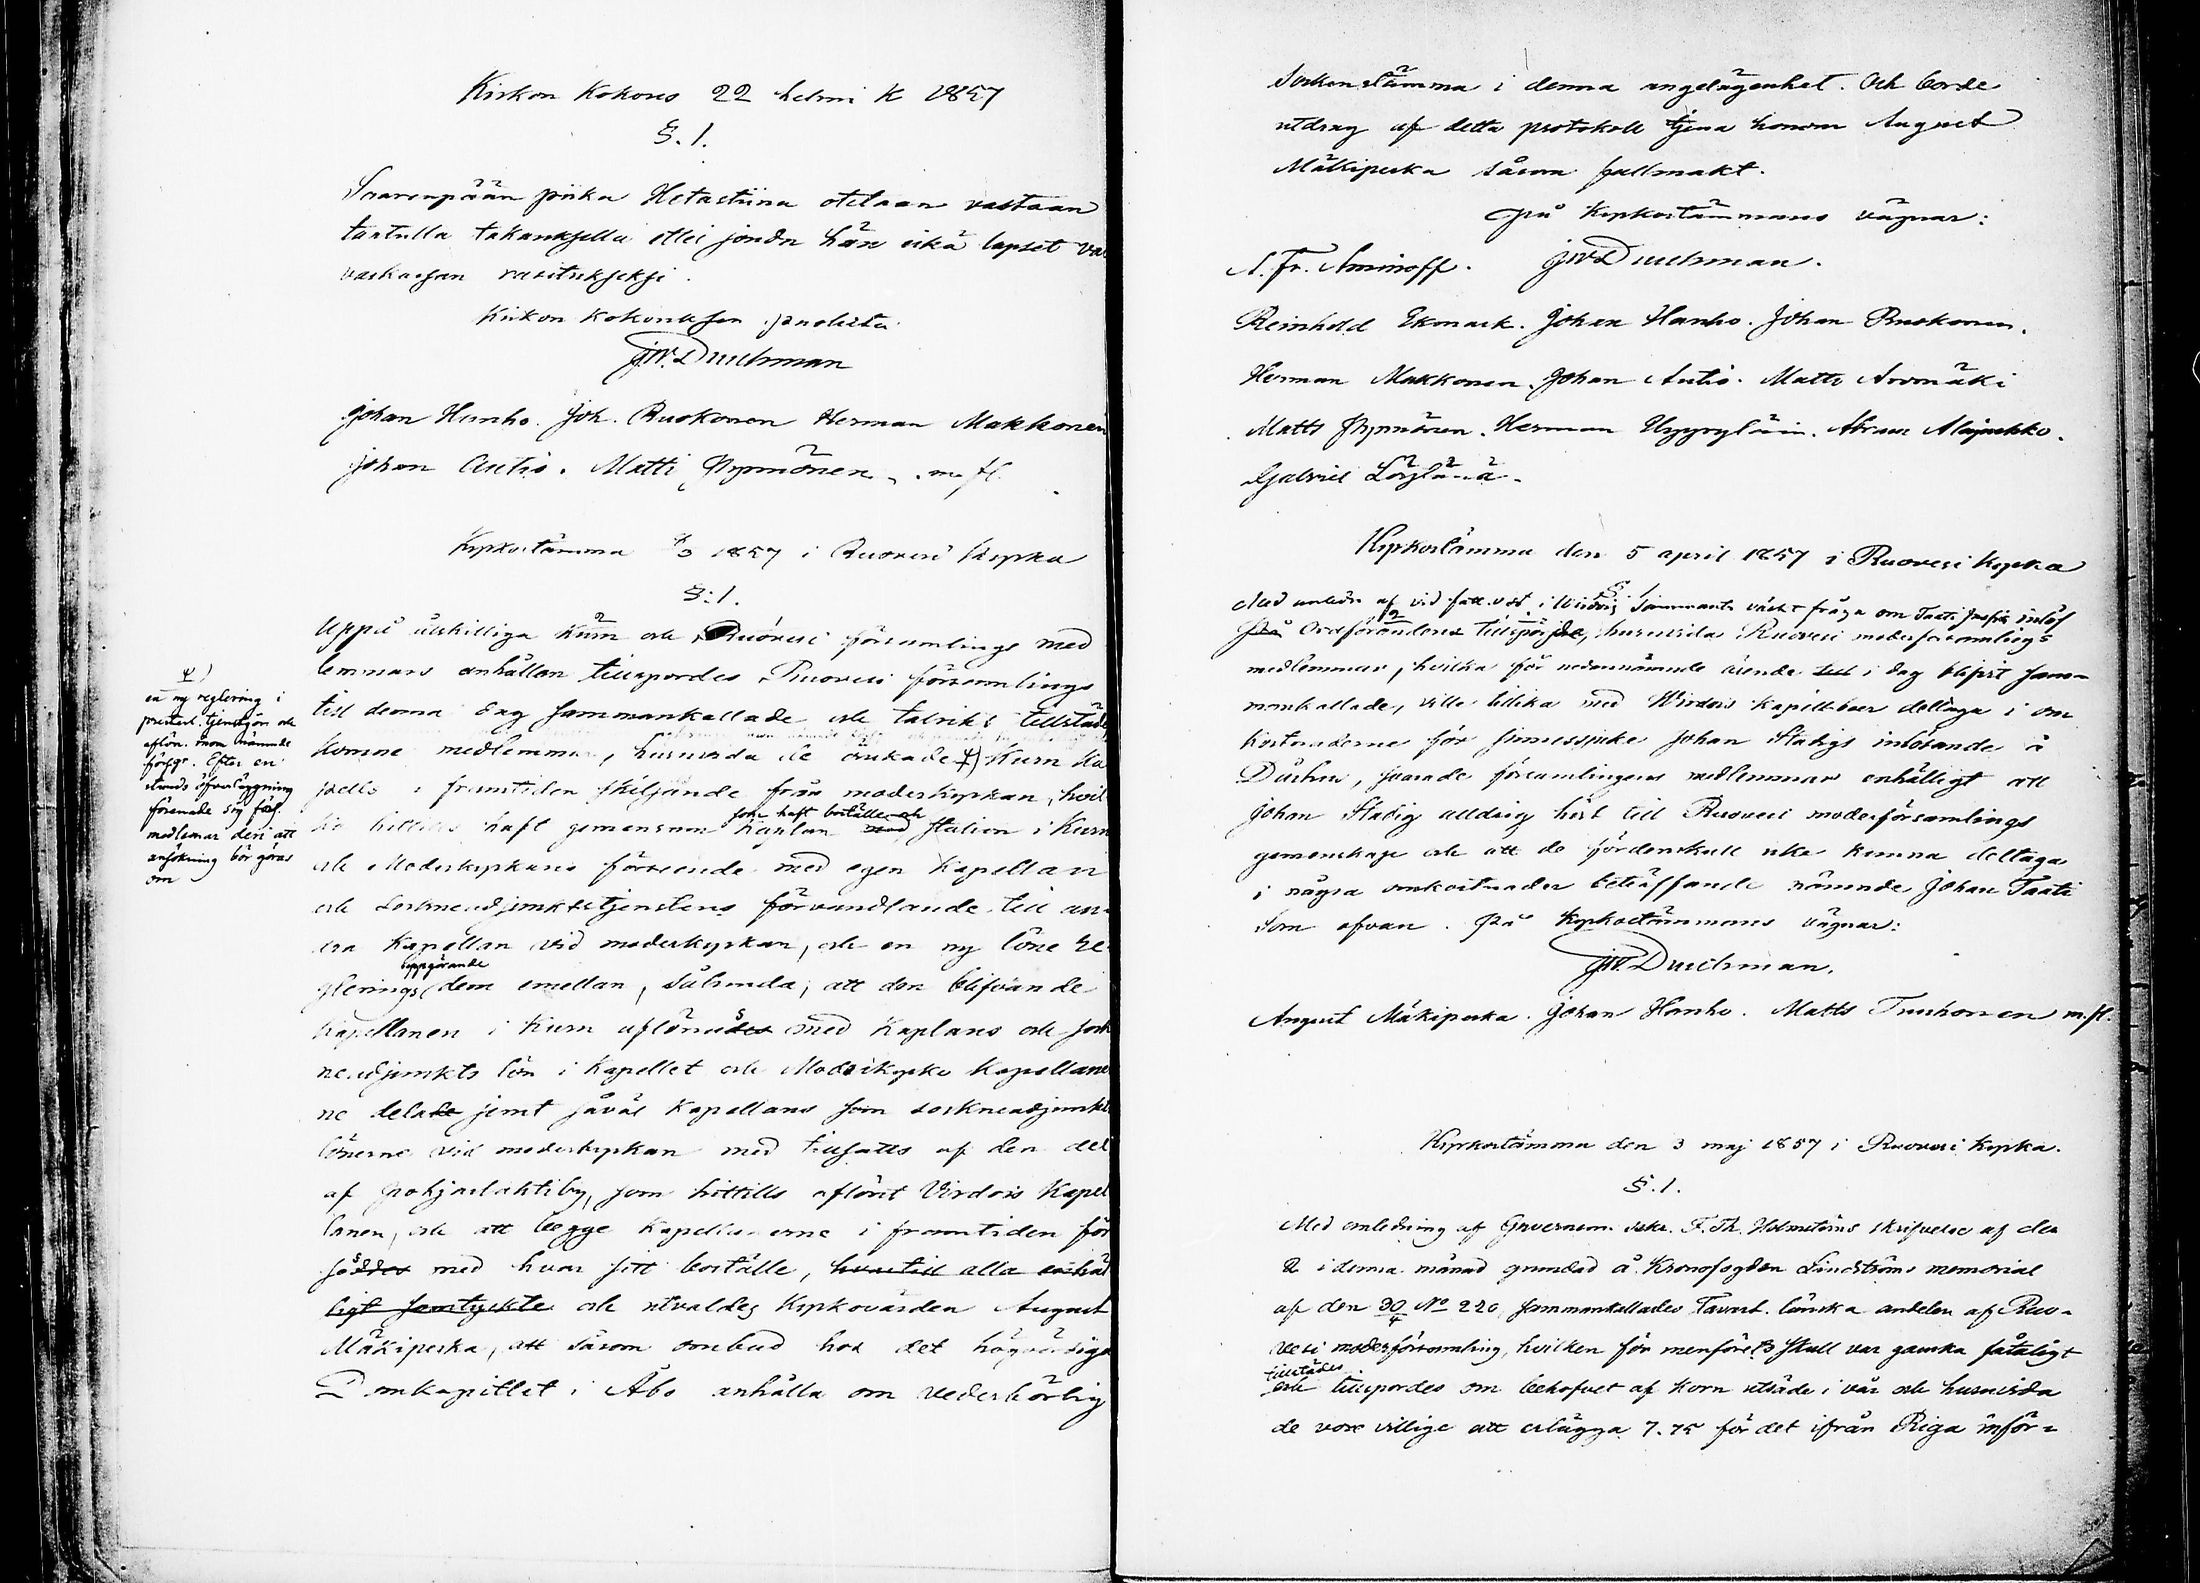 Kirkon Kokous 22 helmi K 1857
§. 1.
Saarenpään piika Hetastiina otetaan vastaan
takauksella ettei joudu hän eikä lapset
vaivaisten rasitukseksi.
Kirkon Kokouksen puolesta
J.W. Durchman
Johan Hanho. Joh. Ruokonen Herman Makkonen
Johan Autio. Matti Hypnönen. m. fl.
Kyrkostämma 1857 i Ruovesi Kyrka
§: 1.
Uppå åtskilliga Kuru och Ruovesi församlings med
lemmars anhållan tillspordes Ruovesi församlings
till denna dag sammankallade och talrikt tillstädes
komne medlemmar, huruvida de önskade ψ) Kuru Ka
pells i framtiden skiljande från moderkyrkan, hvil
ka hittills haft gemensam Kaplan som haft boställe och station i Kuru
och Moderkyrkans förseende med egen Kapellan
och Sockneadjunktstjenstens förvandlande till an-
dra Kapellan vid moderkyrkan, och en ny löne re
glerings uppgörande dem emellan, sålunda, att den blifvande
Kapellanen i Kuru aflönades med Kaplans och sock
neadjunkts lön i Kapellet och Moderkyrko Kapellane
ne delade jemt såväl Kapellans som sockneadjunkts
lönerne vid moderkyrkan med tillsatts af den del
af Pohjaslahti by, som hittills aflönt Virdois Kapel
lanen, och att begge Kapellanerne i framtiden för
såddes med hvar sitt boställe, hvartill alla enhäl
ligt samtyckte och utvaldes Kyrkovärden August
Mäkipeska, att såsom ombud hos det högvördiga
Domkapitlet i Åbo anhålla om vederbörlig
ψ)
en ny reglering i
prestert. tjenstgör. och
aflön. inom nämnde
förs:gr. Efter en
stunds öfverläggning
förenade sig förs.
medlemar deri att
ansökning bör göras
om
Sockenstämma i denna angelägenhet. Och borde
utdrag af detta protokoll tjena honom August
Mäkipeska såsom fullmakt.
På Kyrkostämmans vägnar:
A. Fr. Aminoff. J.W. Durchman.
Reinhold Ekmark. Johan Hanho. Johan Ruokonen.
Herman Makkonen. Johan Autio. Matts
Matts Hypnönen. Herman. Abram Alajaskko.
Gabriel Löylänä.
Kyrkostämma den 5 april 1857 i Ruovesi Kyrka
§. 1
Med anledn af vid fatt.vst i Wirdois Sammante väckt fråga om Taati Josefs inlös
På Ordförandens tillspörjde, huruvida Ruovesi moderförsamlings
medlemmar, hvilka för nedannämnde ärende till i dag blifvit sam-
mankallade, ville tillika med Wirdois kapellboer deltaga i om
kostnaderne för sinnessjuke Johan Stadigs inlösande å
Dårhus, svarade församlingens medlemmar enhälligt att
Johan Stadig alldrig hört till Ruovesi moderförsamlings
gemenskap och att de fördenskull icke kunna deltaga
i några omkostnader beträffande nämnde Johan Taati
Som ofvan. På Kyrkostämmans vägnar:
J.W. Durchman.
August Mäkipeska. Johan Hanho. Matts Tuuhonen m. fl.
Kyrkostämma den 3 maj 1857 i Ruovesi Kyrka.
§. 1.
Med anledning af Guvernem. sekr. F. Th. Holmströms skrifvelse af den
2 i denna månad grundad å Kronofogden Lindströms memorial
af den 30/4 No 220 sammankallades Tavast. länska andelen af Ruo-
vesi moderförsamling, hvilken för menföre's skull var ganska fåtaligt
tillstädes och tillspordes om behofvet af Korn utsäde i vår och huruvida
de vore villige att erlägga 7.75 för det ifrån Riga inför-